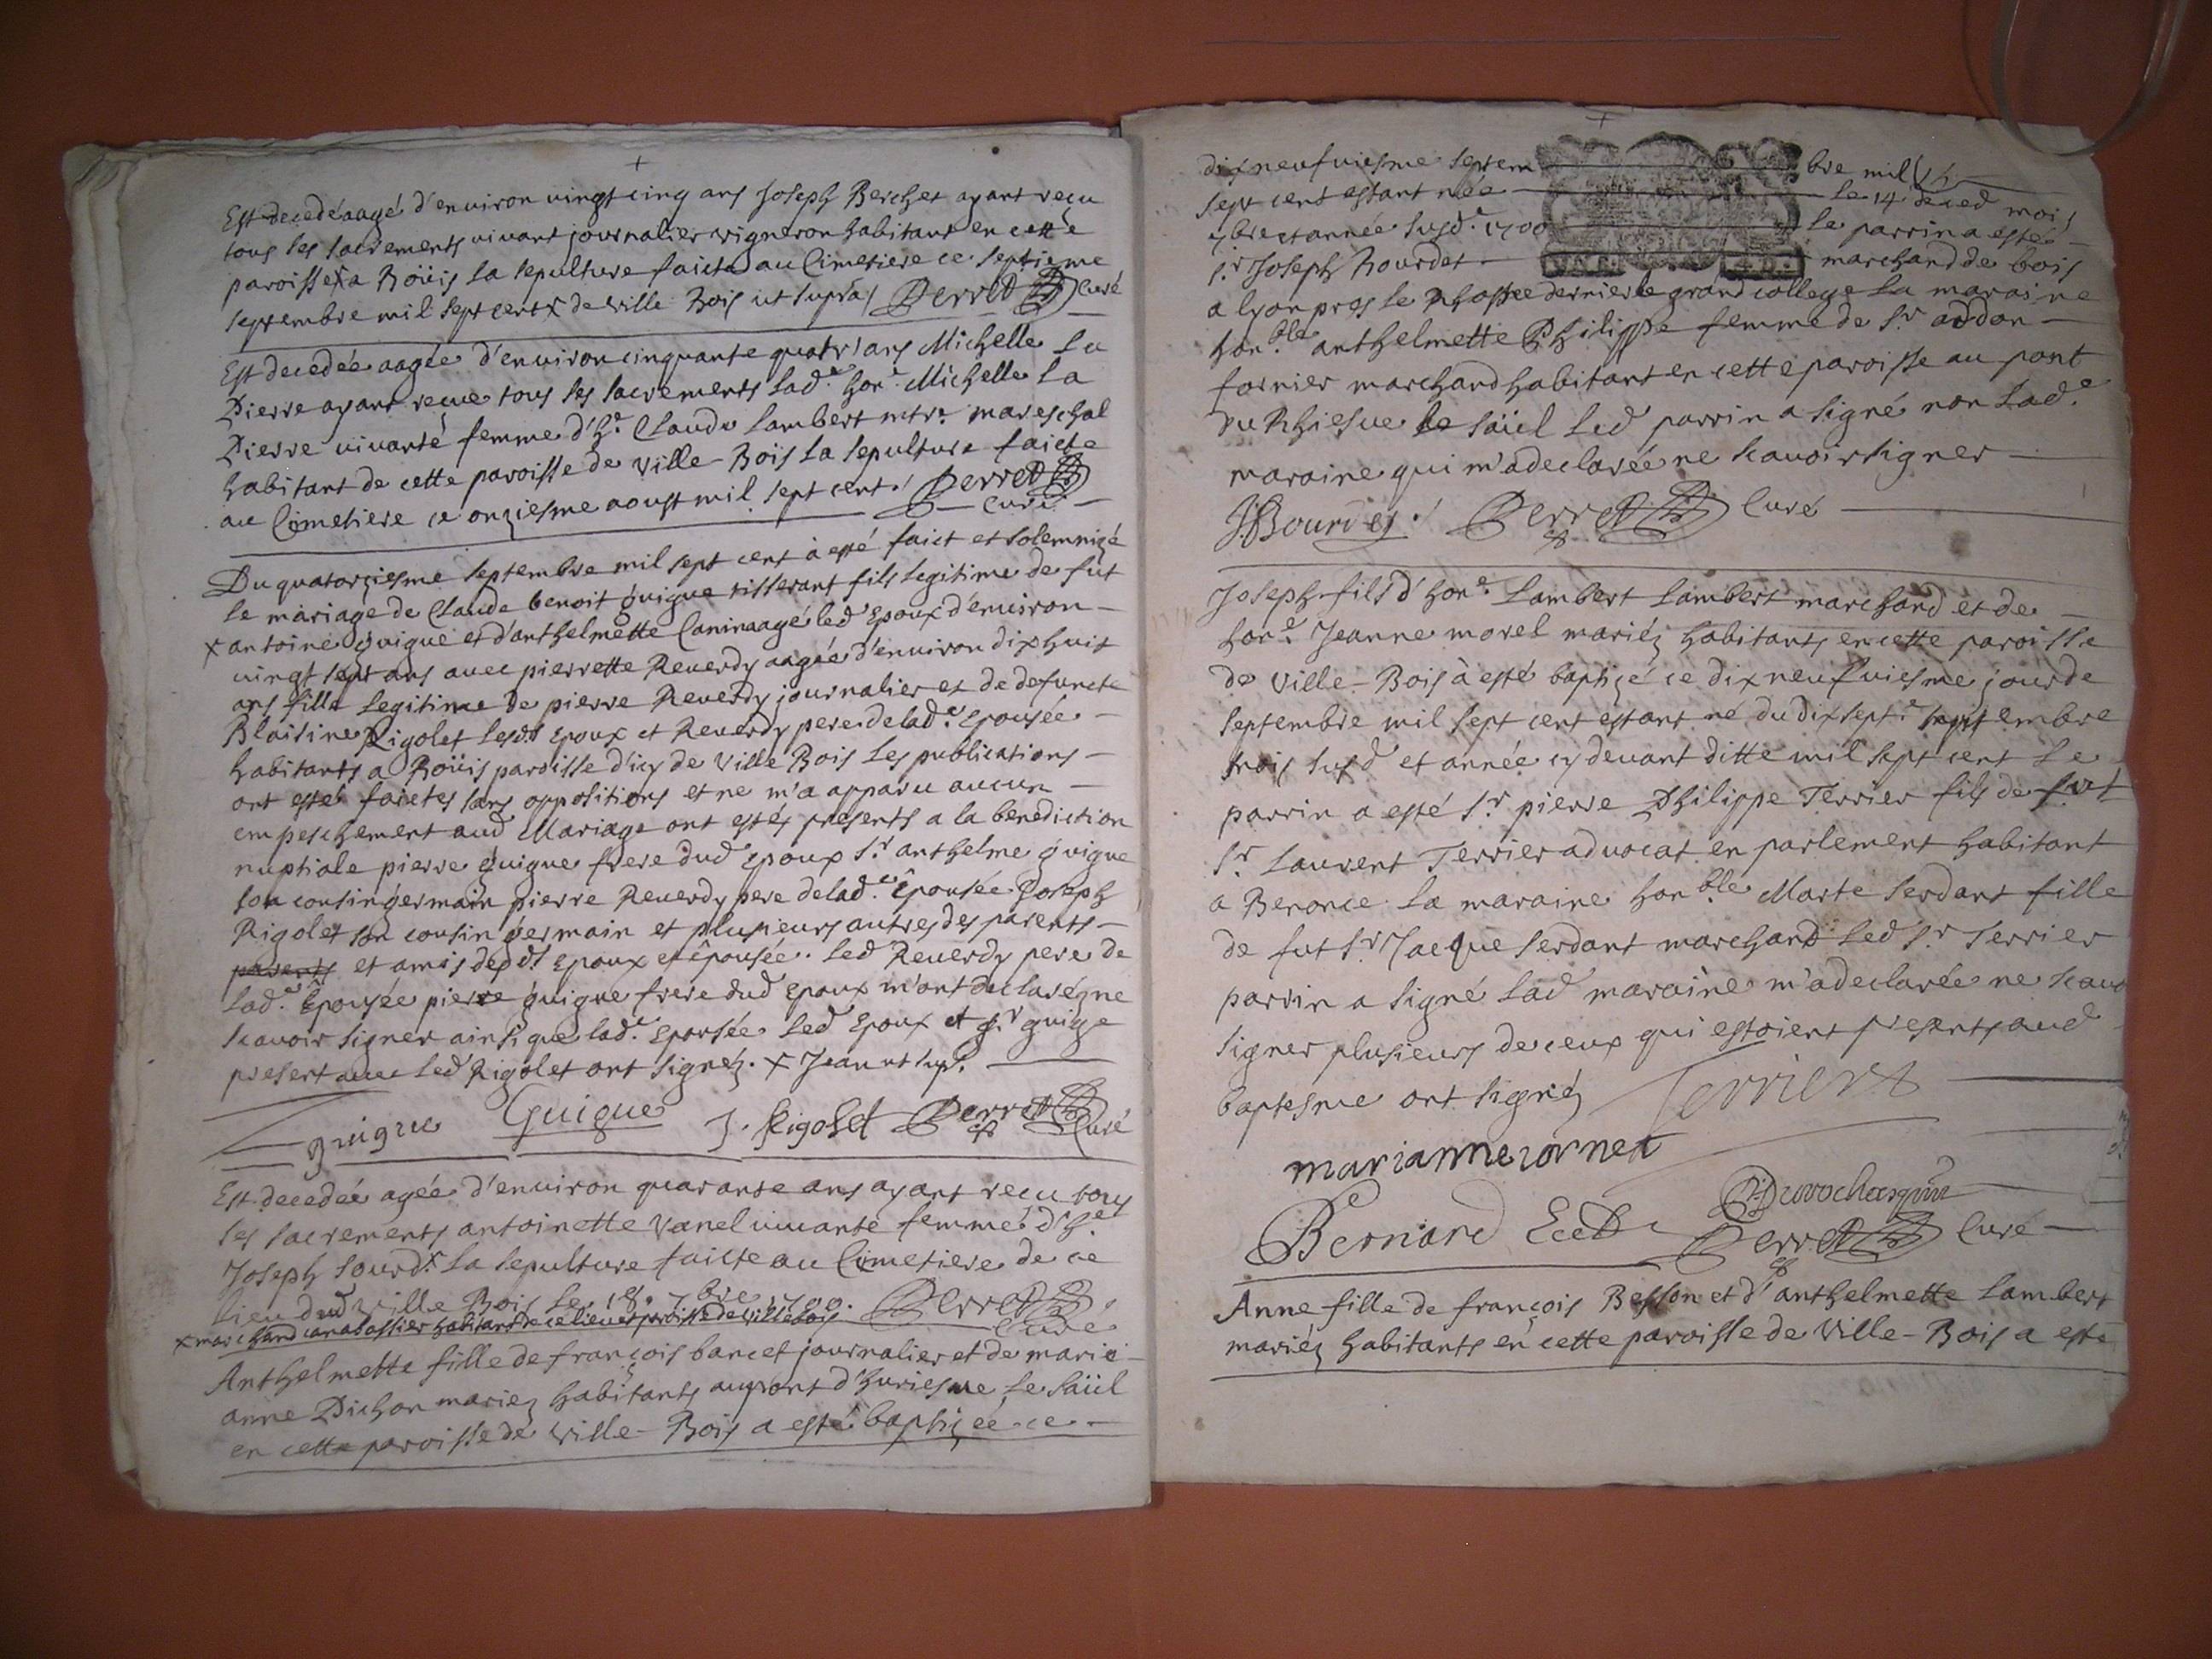 Est decedé aagé d'environ vingt cinq ans Joseph Berchet ayant reçu
tous ses sacrements vivant journalier vigneron habitant en cette
paroisse x a Boüis la sepulture faicte au Cimetiere ce septieme
septembre mil sept cent x de ville Bois ut supra Perret Curé
Est decedée aagée d'environ cinquante quatr' ans Michelle La
Pierre ayant reçue tous ses sacrements lad.e hon.e Michelle La
Pierre vivante femme d'h.e Claude Lambert mtre mareschal
habitant de cette paroisse de ville-Bois la sepulture faicte
au Cimetiere ce onziesme aoust mil sept cent. Perret
Curé
Du quatorziesme septembre mil sept cent à esté faict et solemnizé
le mariage de Claude benoit guigue tisserant fils legitime de fut
x antoine guigue et d'anthelmette Canin aagé led epoux d'environ
vingt sept ans avec pierrette Reverdy aagée d'environ dix huit
ans fille legitime de pierre Reverdy journalier et de defuncte
Blaisine Rigolet lesd.s epoux et Reverdy pere de lad.e epousée
habitants a Boüis paroisse d'icy de Ville Bois les publications
ont estés faictes sans oppositions et ne m'a apparu aucun
empeschement aud Mariage ont estés presents a la benediction
nuptiale pierre guigue frere dud epoux s.r anthelme guigue
son cousin germain pierre Reverdy pere de lad.e epousée Joseph
Rigolet son cousin germain et plusieurs autres des parents
parents et amis desd.s epoux et épousée. led Reverdy pere de
lad.e épousée pierre guigue frere dud epoux m'ont declaré ne
scavoir signer ainsi que lad.e epousée led epoux et s.r guigue
present avec led Rigolet ont signéz. x Jean ut sup.a
guigue Guigue J. Rigolet Perret Curé
Est decedée agée d'environ quarante ans ayant recu tous
ses sacrements antoinette vanel vivante femme d'h.e
Joseph sourd x la sepulture faicte au Cimetiere de ce
lieu dud ville Bois le 18. 7bre 1700. Perret
x marchand habitant de ce lieu et paroisse de ville bois Curé
Anthelmette fille de françois bancet journalier et de marie
anne Pichon mariez habitants au pont d'huriesve le saüil
en cette paroisse de ville-Bois a esté baptizée ce
dix neufviesme septem bre mil
sept cent estant née le 14 de ced mois
7bre et année susd.e 1700 le parrin a esté
s.r Joseph Bourdet marchand de bois
a lyon pres le Rhosne dernier le grand college la maraine
hon.ble anthelmette Philippe femme de s.r addon
fornier marchand habitant en cette paroisse au pont
du Rhiesve le saüil led parrin a signé non lad.e
maraine qui m'a declarée ne scavoir signer
JBourdet Perret Curé
Joseph fils d'hon.e Lambert Lambert marchand et de
hon.e Jeanne morel mariéz habitants en cette paroisse
de Ville-Bois à esté baptizé ce dix neufviesme jour de
septembre mil sept cent estant né du dix sept.e septembre
mois susd et année cy devant ditte mil sept cent le
parrin a esté s.r pierre Philippe Terrier fils de fut
s.r Laurent Terrier advocat en parlement habitant
a Benonce la maraine hon.ble Marte serdant fille
de fut s.r Jacque serdant marchand led s.r Terrier
parrin a signé lad maraine m'a declarée ne scavo
signer plusieurs de ceux qui estoient presents aud
baptesme ont signéz Terrier
marianne cornet
Bernard Perret Curé
Anne fille de françois Besson et d'anthelmette Lambert
mariéz habitants en cette paroisse de Ville-Bois a esté